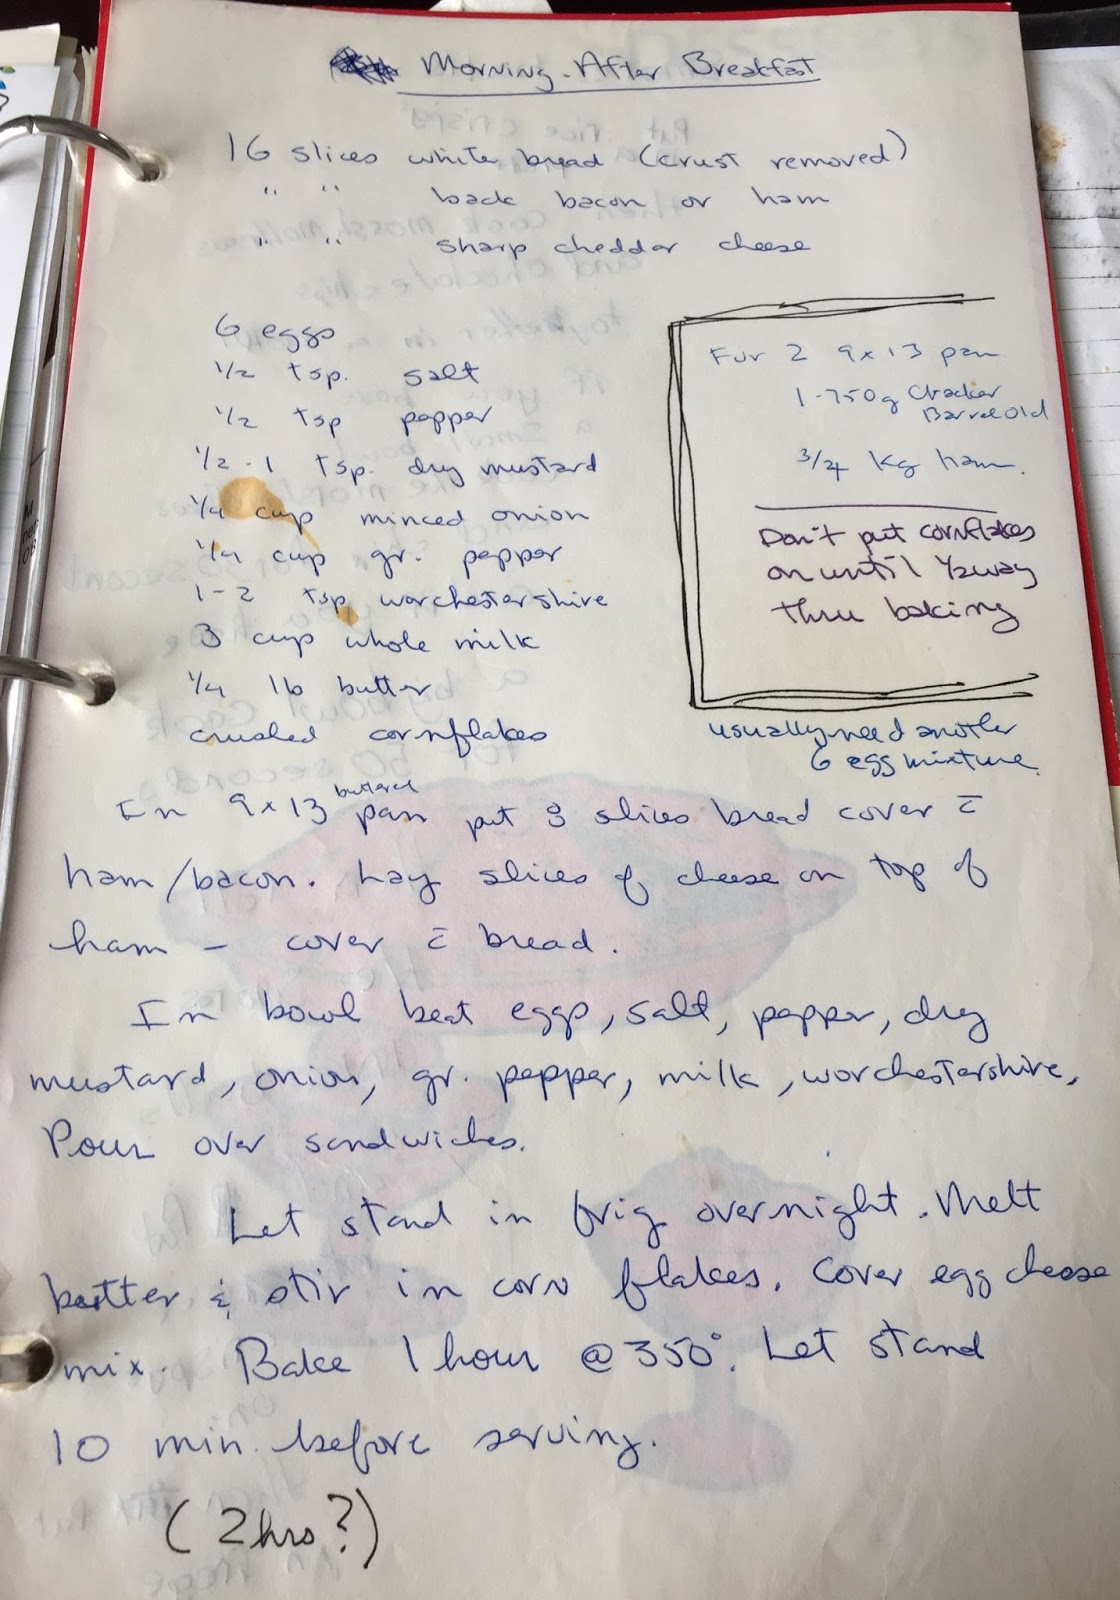 Morning After Breakfast
16 slices white bread (crust removed)
" " back bacon or ham
" " sharp cheddar cheese
6 eggs
1/2 tsp. salt
1/2 tsp pepper
1/2 - 1 tsp. dry mustard
1/4 cup minced onion
1/4 cup gr. pepper
1-2 tsp worchestershire
3 cup whole milk
1/4 lb butter
crushed cornflakes
For 2 9x13 pan
1-750g Cracker
Barrel Old
3/4 kg ham.
Don't put cornflakes
on until 1/2 way
thru baking
usually need another
6 egg mixture.
In 9x13 buttered pan put 8 slices bread cover c̄
ham/bacon. Lay slices of cheese on top of
ham - cover c̄ bread.
In bowl beat eggs, salt, pepper, dry
mustard, onion, gr. pepper, milk, worchestershire,
Pour over sandwiches.
Let stand in frig overnight. Melt
butter & stir in corn flakes. Cover egg cheese
mix. Bake 1 hour @ 350°. Let stand
10 min. before serving.
(2 hrs?)